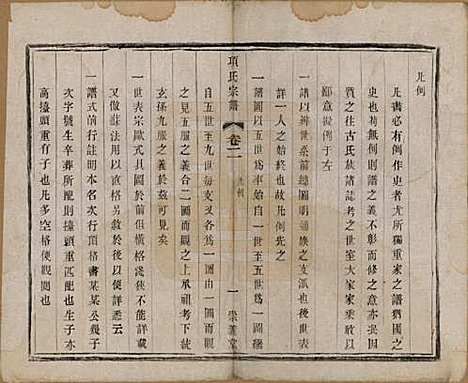 凡例
凡書必有例作史者尤所獨重家之譜猶國之
史也苟無例則譜之義不彰而修之意亦未
貫之徃古氏族諸誌考之世室大家家乘敢以
鄙意擬例于左
一譜以辨世系前總圖明通族之支派也後世表
詳一人之始終也故凡例先之
一譜圖以五世爲率始自一世至五世爲一圖繼
項氏宗譜
卷二
凡例
一
崇義堂
自五世至九世每支又各爲一圖
之見五服之義合二圖而觀之上承祖考下逮
玄孫九服之義於兹可見矣
一世表宗歐式具圖於前但橫格淺狹不能詳載
又做蘇法用以直格另敘於後以便詳悉云
一譜式前行頂格書某某公幾子
次字號生卒葬所擡頭重匹配也生子亦
高擡頭重有子也凡多空格便觀閱也